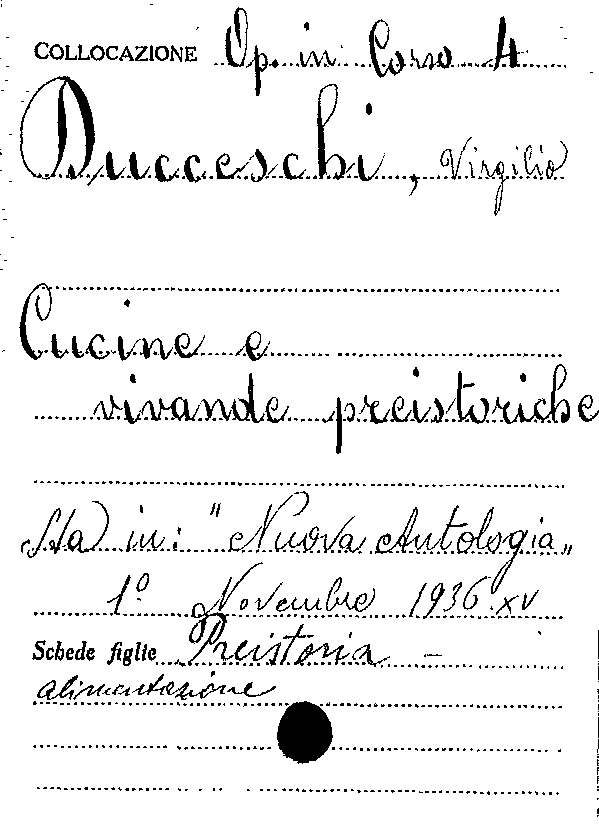 COLLOCAZIONE Op. in Corso 4
Ducceschi, Virgilio
Cucine e
vivande preistoriche
Sta in: "Nuova Antologia„
1º Novembre 1936 XV
Schede figlie Preistoria –
alimentazione